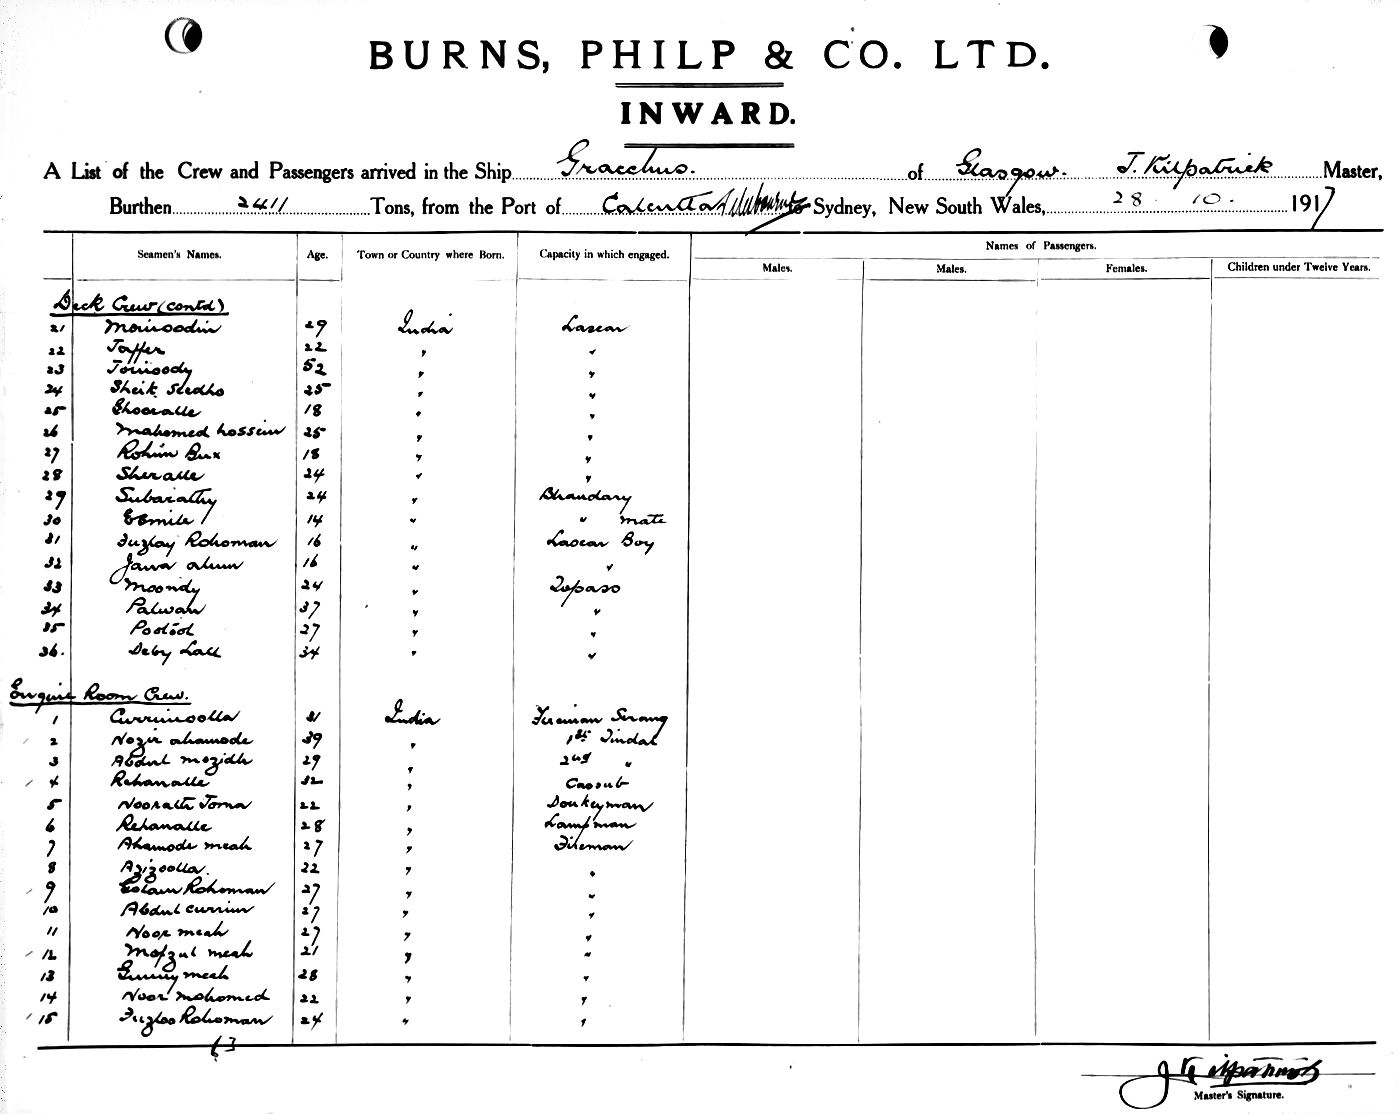 BURNS, PHILP & CO. LTD.
INWARD.
A List of the Crew and Passengers arrived in the Ship Gracchus. of Glasgow. J. Kilpatrick Master,
Burthen 2411 Tons, from the Port of Calcutta Sydney, New South Wales, 28. 10. 1917
Names of Passengers.
Seamen's Names. Age. Town or Country where Born. Capacity in which engaged.
Males. Males. Females. Children under Twelve Years.
Deck Crew (contd)
21 Moinoodin 29 India Lascar
22 Jaffer 22 " "
23 Tonoody 52 " "
24 Sheik Seedho 25 " "
25 18 " "
26 Mahomed hossein 25 " "
27 Rohim Bux 18 " "
28 Sheralle 24 " "
29 Subarathy 24 " Bhandary
30 Esmile 14 " " mate
31 Fuzloy Rohoman 16 " Lascar Boy
32 Jawa alum 16 " "
33 Moondy 24 " Topaso
34 Palwan 37 " "
35 27 " "
36. Deby Lall 34 " "
Engine Room Crew.
1 Currimoolla 31 India Fireman Serang
2 Nozir ahamode 39 " 1st Tindal
3 Abdul mozidh 29 " 2nd "
4 Rehanalle 32 " Cassub
5 Nooralli Toma 22 " Donkeyman
6 Rehanalle 28 " Lampman
7 Ahamode meah 27 " Fireman
8 Azizoolla. 22 " "
9 Golam Rohoman 27 " "
10 Abdul currim 27 " "
11 Noor meah 27 " "
12 Mofzul meah 21 " "
13 Gunny meah 28 " "
14 Noor mohomed 22 " "
15 Fuzloo Rohoman 24 " "
63
J Kilpatrick
Master's Signature.